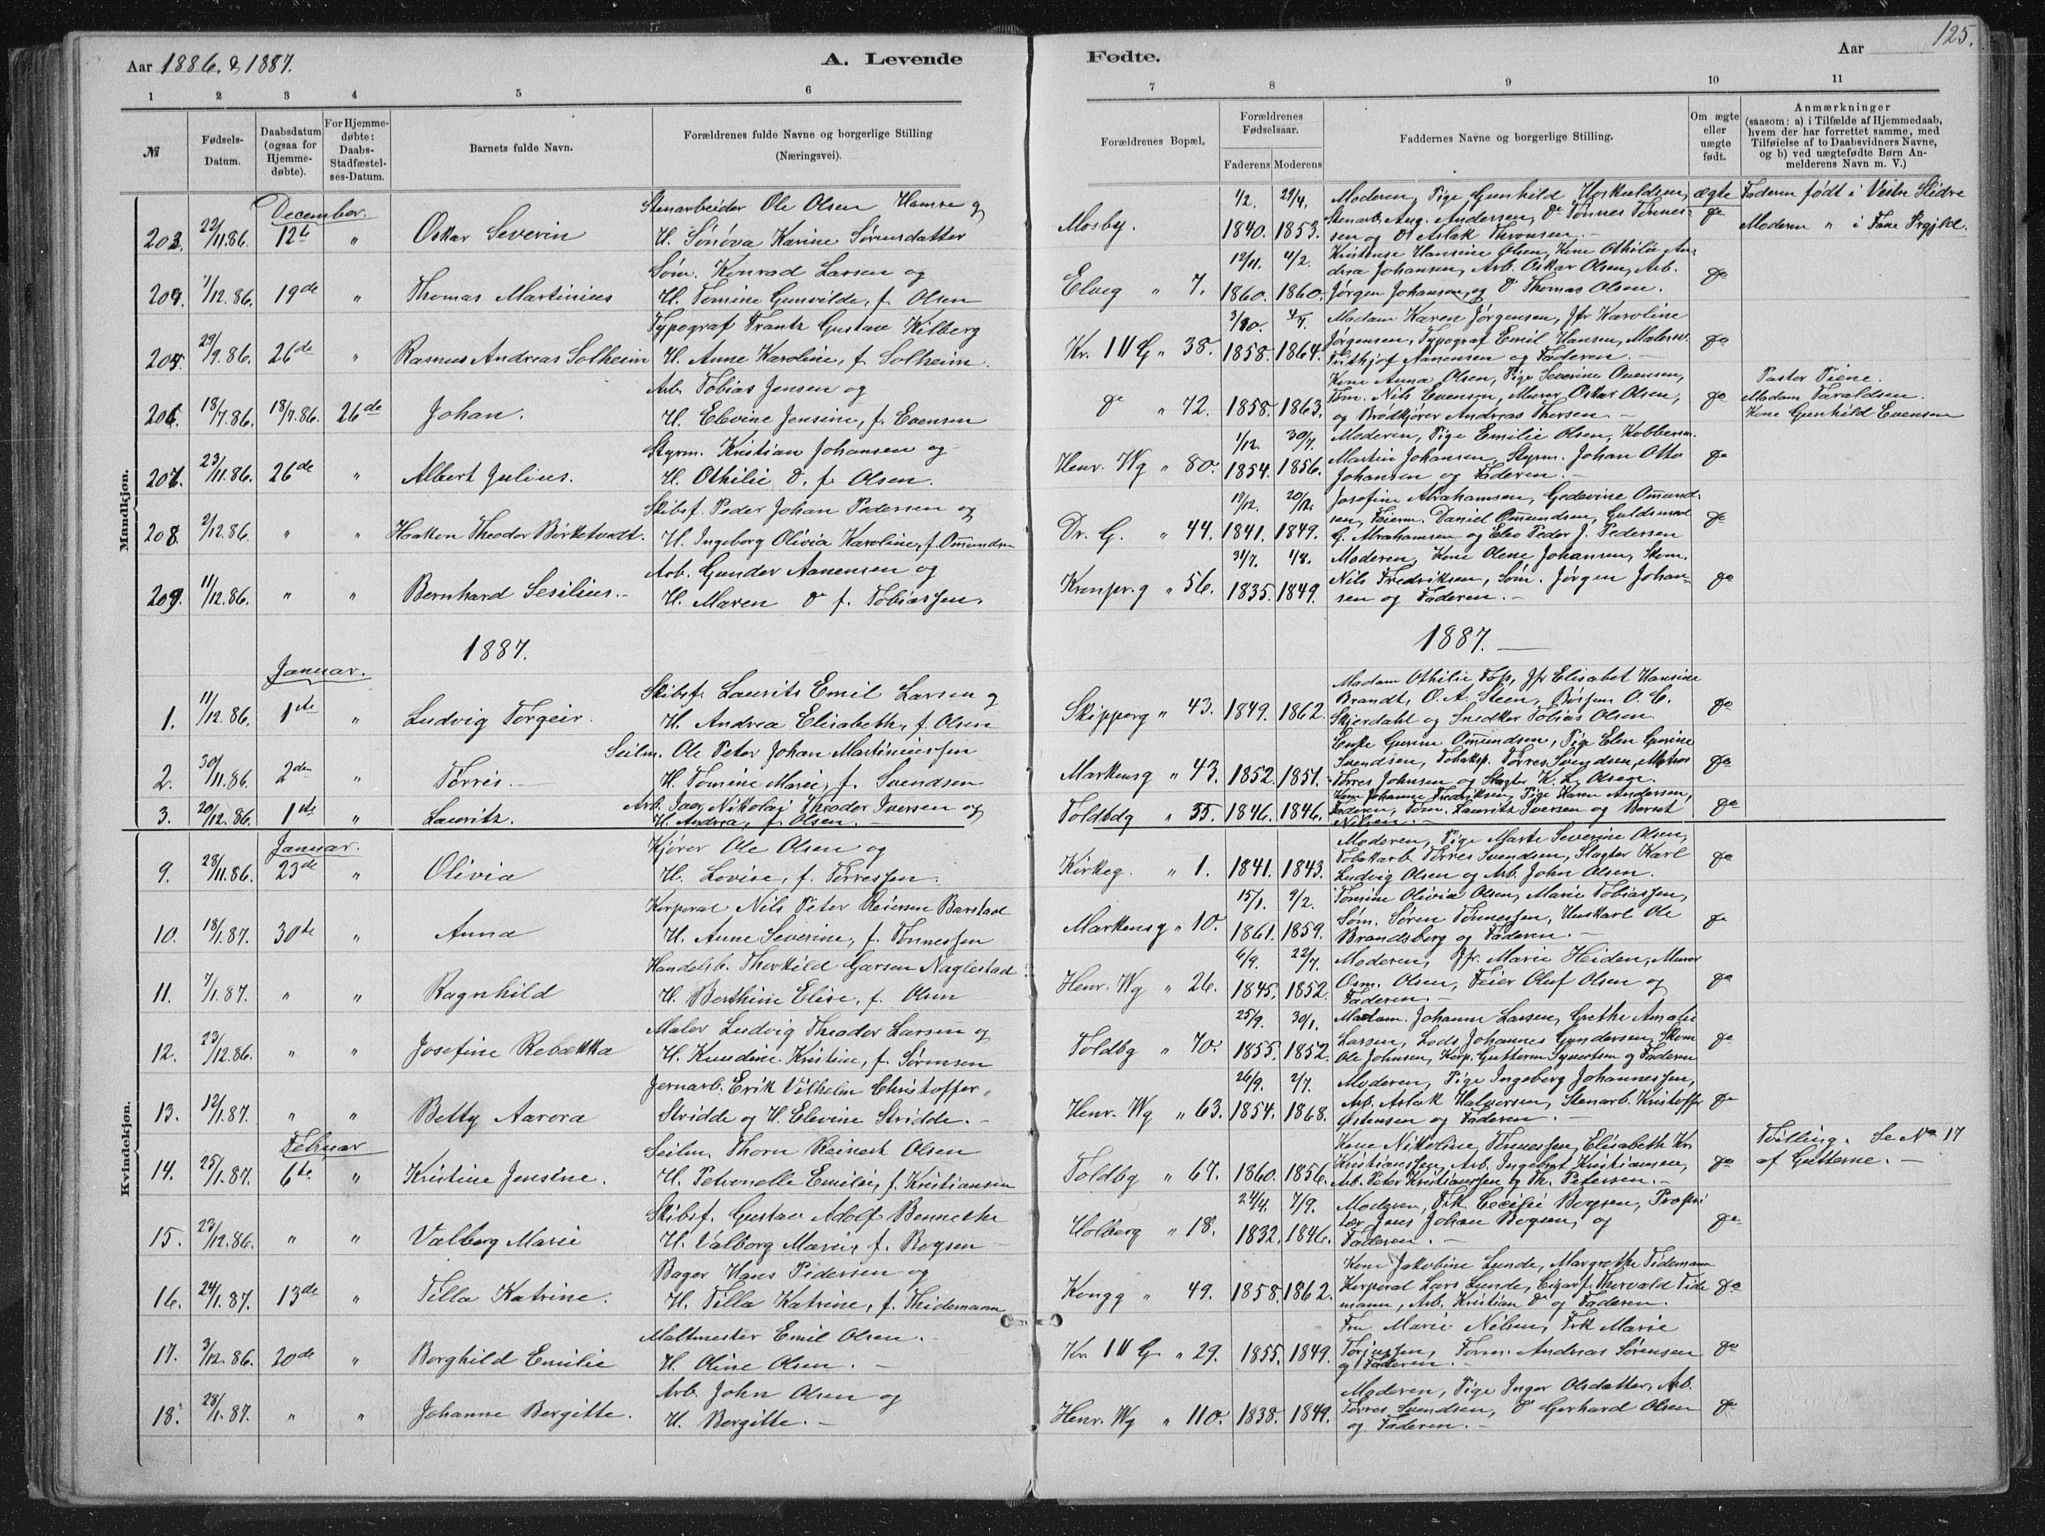 Aar 1886. & 1887.
A. Levende
Fødte.
Aar
125.
1 2 3 4 5 6 7 8 9 10 11
№
Fødsels-
Datum.
Daabsdatum
(ogsaa for
Hjemme-
døbte).
For Hjemme-
døbte:
Daabs-
Stadfæstel-
ses-Datum.
Barnets fulde Navn.
Forældrenes fulde Navne og borgerlige Stilling
(Næringsvei).
Forældrenes Bopæl.
Forældrenes
Fødselsaar.
Faderens Moderens
Faddernes Navne og borgerlige Stilling.
Om ægte
eller
uægte
født.
Anmærkninger
(saasom: a) i Tilfælde af Hjemmedaab,
hvem der har forrettet samme, med
Tilføielse af to Daabsvidners Navne,
og b) ved uægtefødte Børn An-
melderens Navn m. V.)
Mandkjøn.
December.
203. 22/11.86. 12te " Oskar Severin
Stenarbeider Ole Olsen Hamre og
H. Sønøva Karine Sørensdatter
Mosby. 1/2. 1840. 29/4. 1853.
Moderen, Pige Gunhild Hoskuldsen,
Stenarb. Aug. Andersen, Do Tønnes Tønnes-
sen og Do Aslak Thronsen.
ægte
do
Faderen født i Vestre Slidre
Moderen " i Fane Prgjld.
204. 7/12.86. 19de " Thomas Martinius
Søm. Konrad Larsen og
H. Tomine Gunvilde, f. Olsen
Elveg " 7. 12/11. 1860. 4/2. 1860.
Kristense Hansine Olsen, Kone Othilie An-
drea Johansen, Arb. Oskar Olsen, Arb.
Jørgen Johansen, og Do Thomas Olsen.
do
205. 29/9.86. 26de " Rasmus Andreas Solheim
Typograf Frantz Gustav Kilberg
H. Anne Karoline, f. Solheim.
Kr. IV G " 38. 3/10. 1858. 1864.
Madam Karen Jørgensen, Jfr Karoline
Jørgensen, Typograf Emil Hansen, Malersv.
Frithjof Aanensen og Faderen.
do
206. 18/7.86. 18/7.86. 26de Johan.
Arb. Tobias Jensen og
H. Elevine Jensine, f. Evensen
do " 72. 1858. 1863.
Kone Anna Olsen, Pige Severine Evensen,
Tøm. Nils Evensen, Murer Oskar Olsen,
og Brødkjører Andreas Thorsen.
do
Pastor Piene.
Madam Taraldsen.
Kone Gunhild Evensen
207. 23/11.86. 26de " Albert Julius.
Styrm. Kristian Johansen og
H. Othilie D. f. Olsen.
Henr. Wg " 80. 1/12. 1854. 30/7. 1856.
Moderen, Pige Emilie Olsen, Kobbersm.
Martin Johansen, Styrm. Johan Otto
Johansen og Faderen.
do
208. 2/12.86. " " Haakon Theodor Birketvedt.
Skibsf. Peder Johan Pedersen og
H. Ingeborg Olivia Karoline, f. Omundsen
Dr. G. " 44. 19/12. 1841. 20/12. 1849.
Josefine Abrahamsen, Gedevine Omund-
sen, Feierm. Daniel Omundsen, Guldsmed
G. Abrahamsen og Elev Peder J. Pedersen
do
209. 11/12.86. " " Bernhard Sesilius.
Arb. Gunder Aanensen og
H. Maren Do f. Tobiassen.
Kronpr.g " 56. 31/7. 1835. 1/8. 1849.
Moderen, Kone Olene Johansen, Skom.
Nils Fredriksen, Søm. Jørgen Johan-
sen og Faderen.
do
1887.
1887.
Januar.
1. 11/12.86. 1ste " Ludvig Torgeir.
Skibsf. Laurits Emil Larsen og
H. Andrea Elisabeth, f. Olsen
Skipperg " 43. 1849. 1862.
Madam Othilie Foss, Jfr Elisabet Hansine
Brandt, O. A. Steen, Børsem. O. C.
Skjerdahl og Snedker Tobias Olsen.
do
2. 30/11.86. 2den " Tørris.
Seilm. Ole Peter Johan Martiniussen
H. Tomine Marie, f. Svendsen
Markensg " 43. 1852. 1851.
Enke Gurine Omundsen, Pige Elen Gurine
Svendsen, Tobaksp. Tørres Svendsen, Matros
Tørres Johnsen og Slagter K. L. Olsen.
do
3. 20/12.86. 1ste " Lauritz.
Arb. Nikolai Theodor Iversen og
H. Andrea, f. Olsen.
Toldbdg " 55. 1846. 1846.
Kone Johanne Fredriksen, Pige Karen Andersen,
Faderen, Tøm. Lauritz Iversen og Bernt
Nilsen.
do
Kvindekjøn.
Januar.
9. 28/11.86. 23de " Olivia
Kjører Ole Olsen og
H. Lovise, f. Tørressen.
Kirkeg. " 1. 1841. 1843.
Moderen, Pige Marte Severine Olsen,
Tobakarb. Tørres Svendsen, Slagter Karl
Ludvig Olsen og Arb. John Olsen.
do
10. 18/1.87. 30te " Anna
Korporal Nils Peter Reiersen Barstad
H. Anne Severine, f. Tønnessen
Markensg " 10. 15/1. 1861. 9/2. 1859.
Tomine Olivia Olsen, Marie Tobiassen,
Søm. Søren Tønnessen, Huskarl Ole
Brandsberg og Faderen.
do
11. 7/1.87. " " Ragnhild
Handelsb. Thorkild Garsen Naglestad
H. Berthine Elise, f. Olsen
Henr. Wg " 26. 6/9. 1845. 22/7. 1852.
Moderen, Jfr. Marie Heiden, Murer
Osm. Olsen, Feier Oluf Olsen og
Faderen.
do
12. 23/12.86. " " Josefine Rebekka
Maler Ludvig Theodor Larsen og
H. Kundine Kristine, f. Sørensen
Toldbg " 70. 25/9. 1855. 30/1. 1852.
Madam. Johanne Larsen, Grethe Amalie
Larsen, Lods Johannes Gundersen, Skom.
Ole Johnsen, Korp. Guttorm Syvertsen og Faderen
do
13. 12/1.87. " " Betty Aarora
Jernarb. Erik Vilhelm Christoffer
Stridde og H. Elevine Stridde.
Henr. Wg " 63. 26/9. 1854. 2/7. 1868.
Moderen, Pige Ingeborg Johannessen,
Arb. Aslak Halvorsen, Stenarb. Kristoffer
Østensen og Faderen.
do
Februar
14. 25/1.87. 6te " Kristine Jensine.
Seilm. Thorn Reinert Olsen
H. Petronelle Emilie, f. Kristiansen
Toldbg " 67. 1860. 1856.
Kone Nikoline Tønnessen, Elisabeth Kr.
Kristianssen, Arb. Ingebret Kristiansen,
Arb. Peter Kristianssen og Th. Petersen.
do
Tvilling. Se No 17
af Gutterne.
15. 23/12.86. " " Valborg Marie
Skibsf. Gustav Adolf Bennethe
H. Valborg Marie, f. Bogsen
Holberg " 18. 24/4. 1832. 7/9. 1846.
Moderen, Frk Cecilie Bogsen, Propri-
tær Jens Johan Bogsen, og
Faderen.
do
16. 24/1.87. 13de " Tilla Katrine.
Bager Hans Pedersen og
H. Tilla Katrine, f. Thidemann
Kongg " 49. 1858. 1862.
Kone Jakobine Lunde, Margrethe Tidemann
Korporal Lars Lunde, Cigarf. Thorvald Tide-
mann, Arb. Kristian Do og Faderen.
do
17. 3/12.86. 20de " Borghild Emilie
Maltmester Emil Olsen.
H. Oline Olsen.
Kr. IV G " 29. 1855. 1849.
Fru Marie Nilsen, Frk Marie
Torjussen, Andreas Sørensen
og Faderen.
do
18. 28/1.87. " " Johanne Bergitte.
Arb. John Olsen og
H. Bergitte.
Henr. Wg " 110. 1838. 1849.
Moderen, Pige Inger Olsdatter, Arb.
Tørres Svendsen, Do Gerhard Olsen
og Faderen.
do